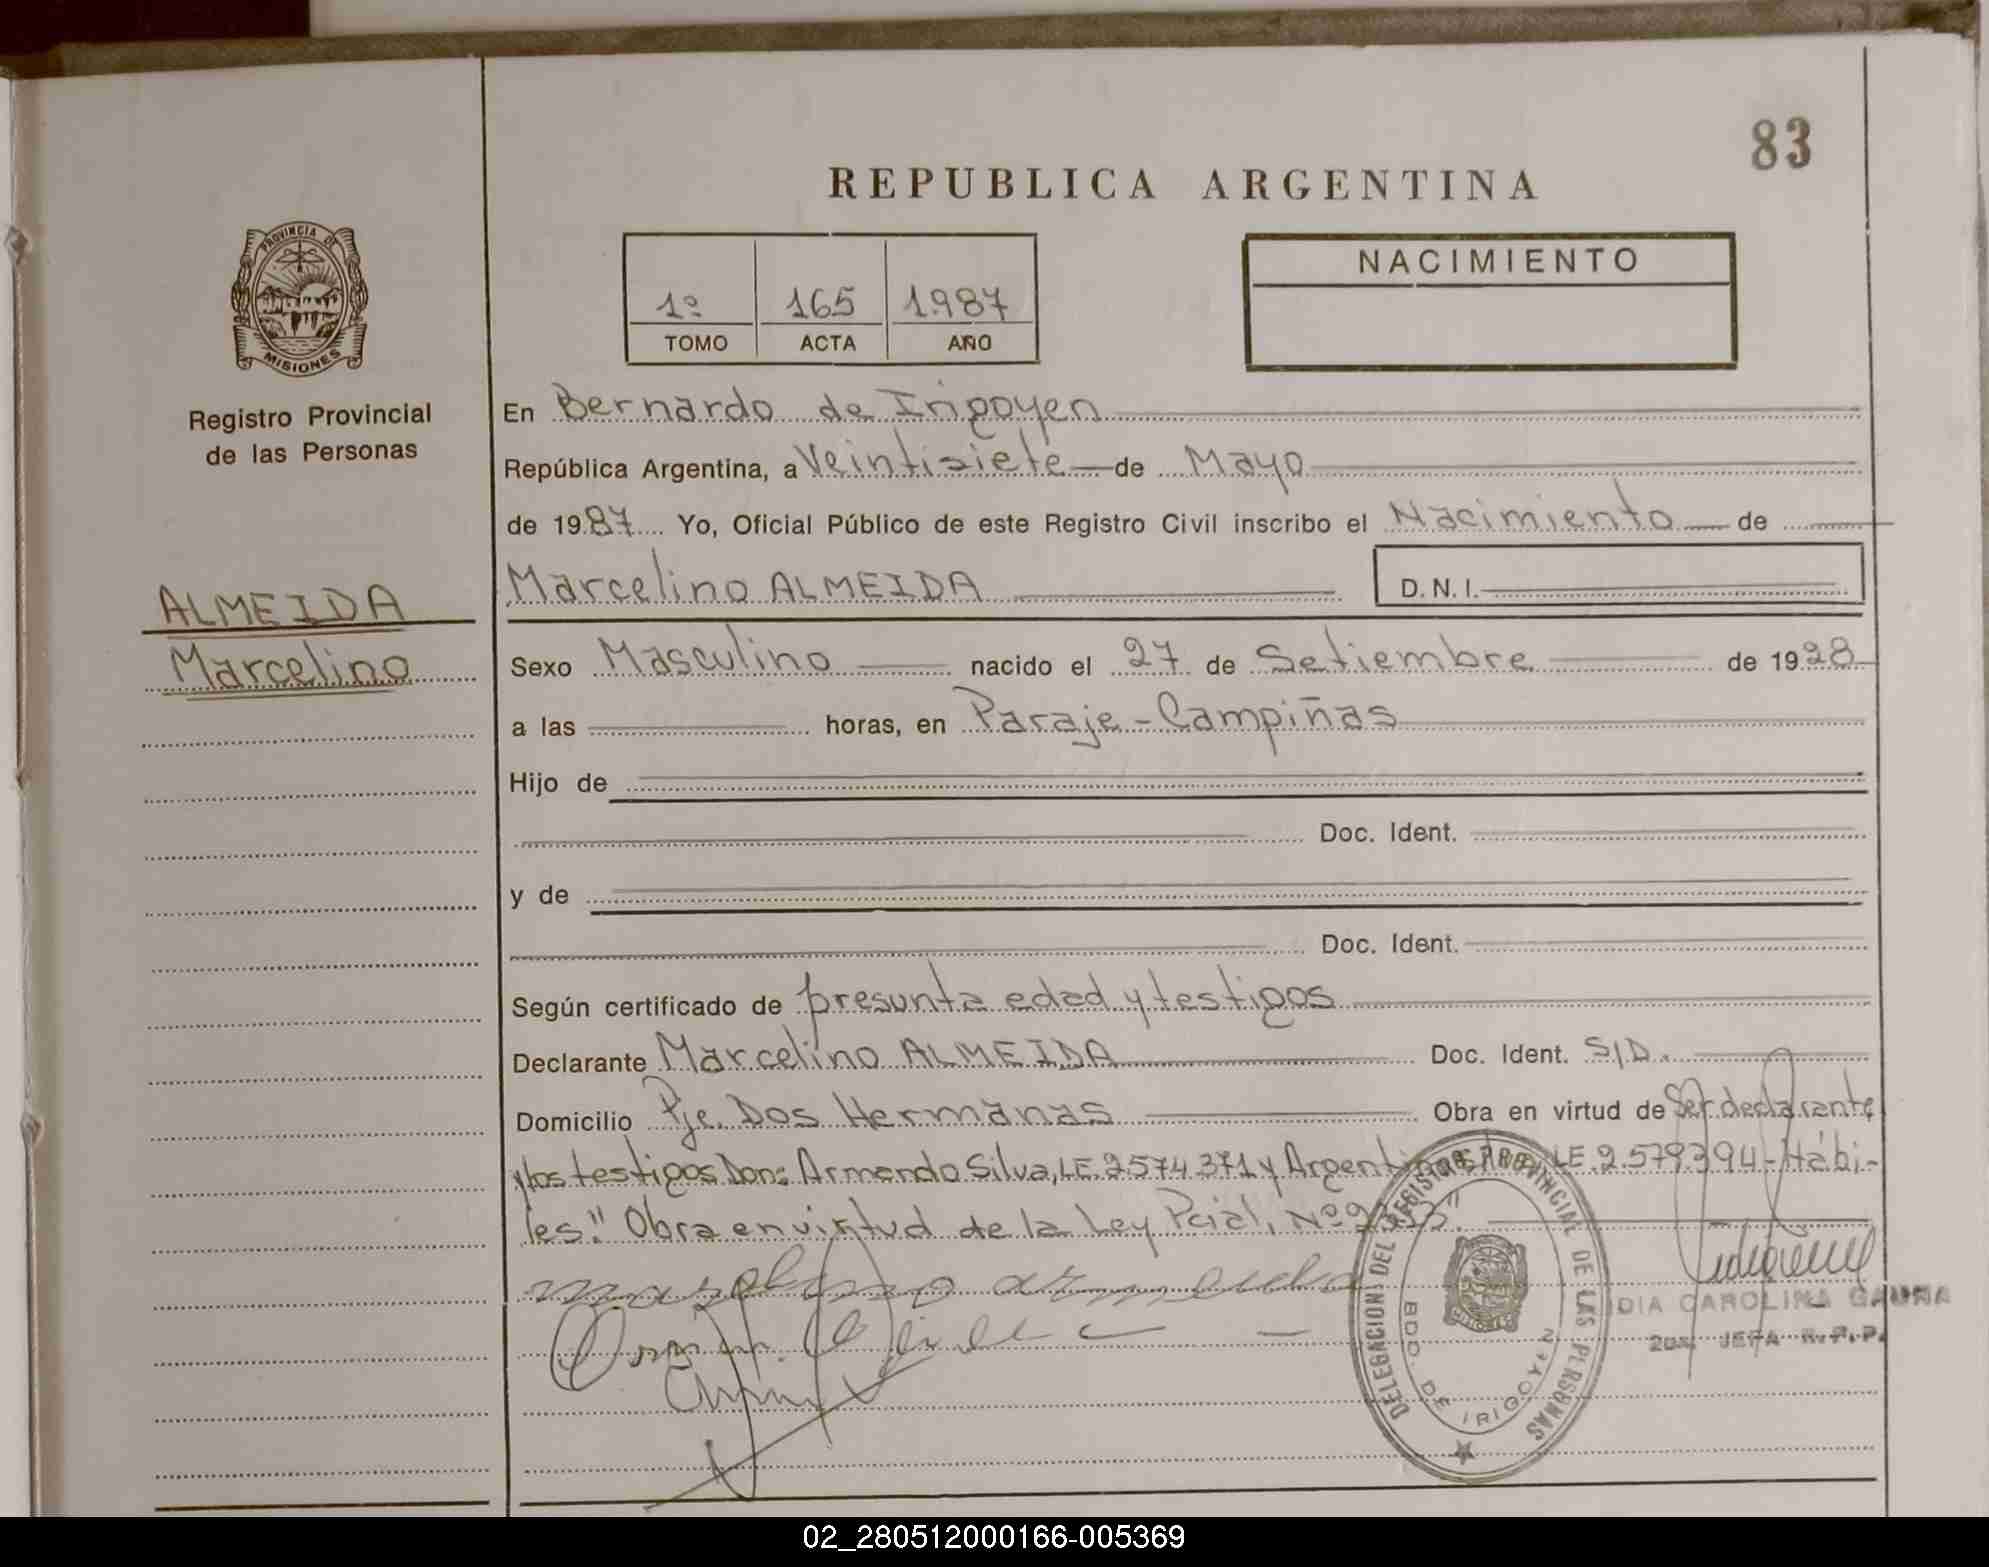 83
REPUBLICA ARGENTINA
PROVINCIA DE
MISIONES
Registro Provincial
de las Personas
1º 165 1.987
TOMO ACTA AÑO
NACIMIENTO
En Bernardo de Irigoyen
República Argentina, a Veintisiete de Mayo
de 1987 Yo, Oficial Público de este Registro Civil inscribo el Nacimiento de
Marcelino ALMEIDA D.N.I.
ALMEIDA
Marcelino
Sexo Masculino nacido el 27 de Setiembre de 1928
a las horas, en Paraje-Campiñas
Hijo de
Doc. Ident.
y de
Doc. Ident.
Según certificado de presunta edad y testigos
Declarante Marcelino ALMEIDA Doc. Ident. S/D.
Domicilio Pje. Dos Hermanas Obra en virtud de Ser declarante
y los testigos Don: Armando Silva, LE. 2574.371 y LE. 2.579.394-Hábi-
les." Obra en virtud de la Ley Pcial. Nº
marselino almeida
DELEGACION DEL REGISTRO PROVINCIAL DE LAS PERSONAS
BDO. DE IRIGOYEN
CAROLINA GAUNA
2da. JEFA R.P.P.
02_280512000166-005369